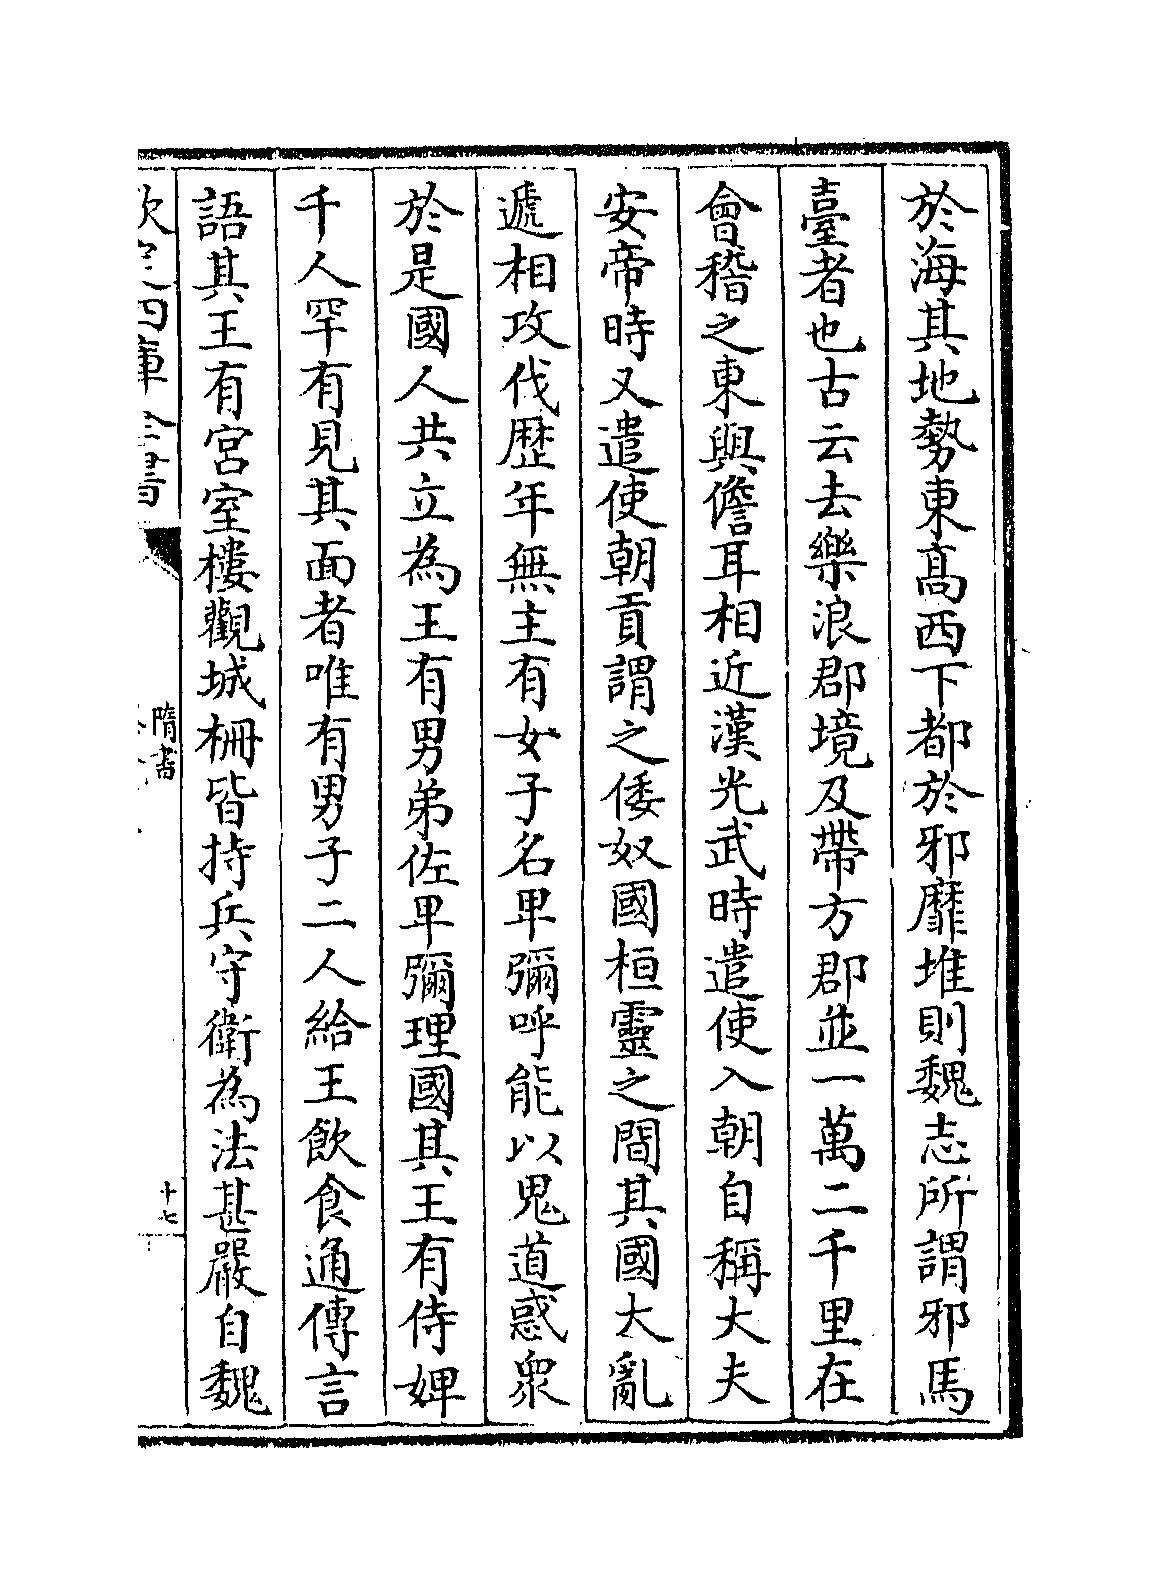 於海其地勢東髙西下都於邪靡堆則魏志所謂邪馬
臺者也古云去樂浪郡境及帶方郡並一萬二千里在
會稽之東與儋耳相近漢光武時遣使入朝自稱大夫
安帝時又遣使朝貢謂之倭奴國桓靈之間其國大亂
遞相攻伐歴年無主有女子名卑彌呼能以鬼道惑衆
於是國人共立為王有男弟佐卑彌理國其王有侍婢
千人罕有見其面者唯有男子二人給王飲食通傳言
語其王有宮室樓觀城柵皆持兵守衛為法甚嚴自魏
欽定四庫全書
隋書
十七